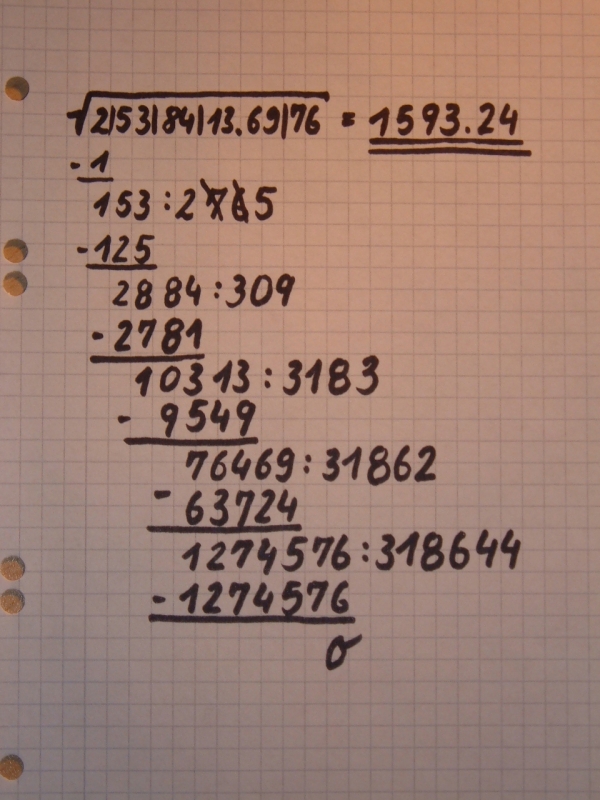 √2|53|84|13.69|76 = 1593.24
-1
153:2 7 6 5
-125
2884:309
-2781
10313:3183
- 9549
76469:31862
- 63724
1274576:318644
- 1274576
0